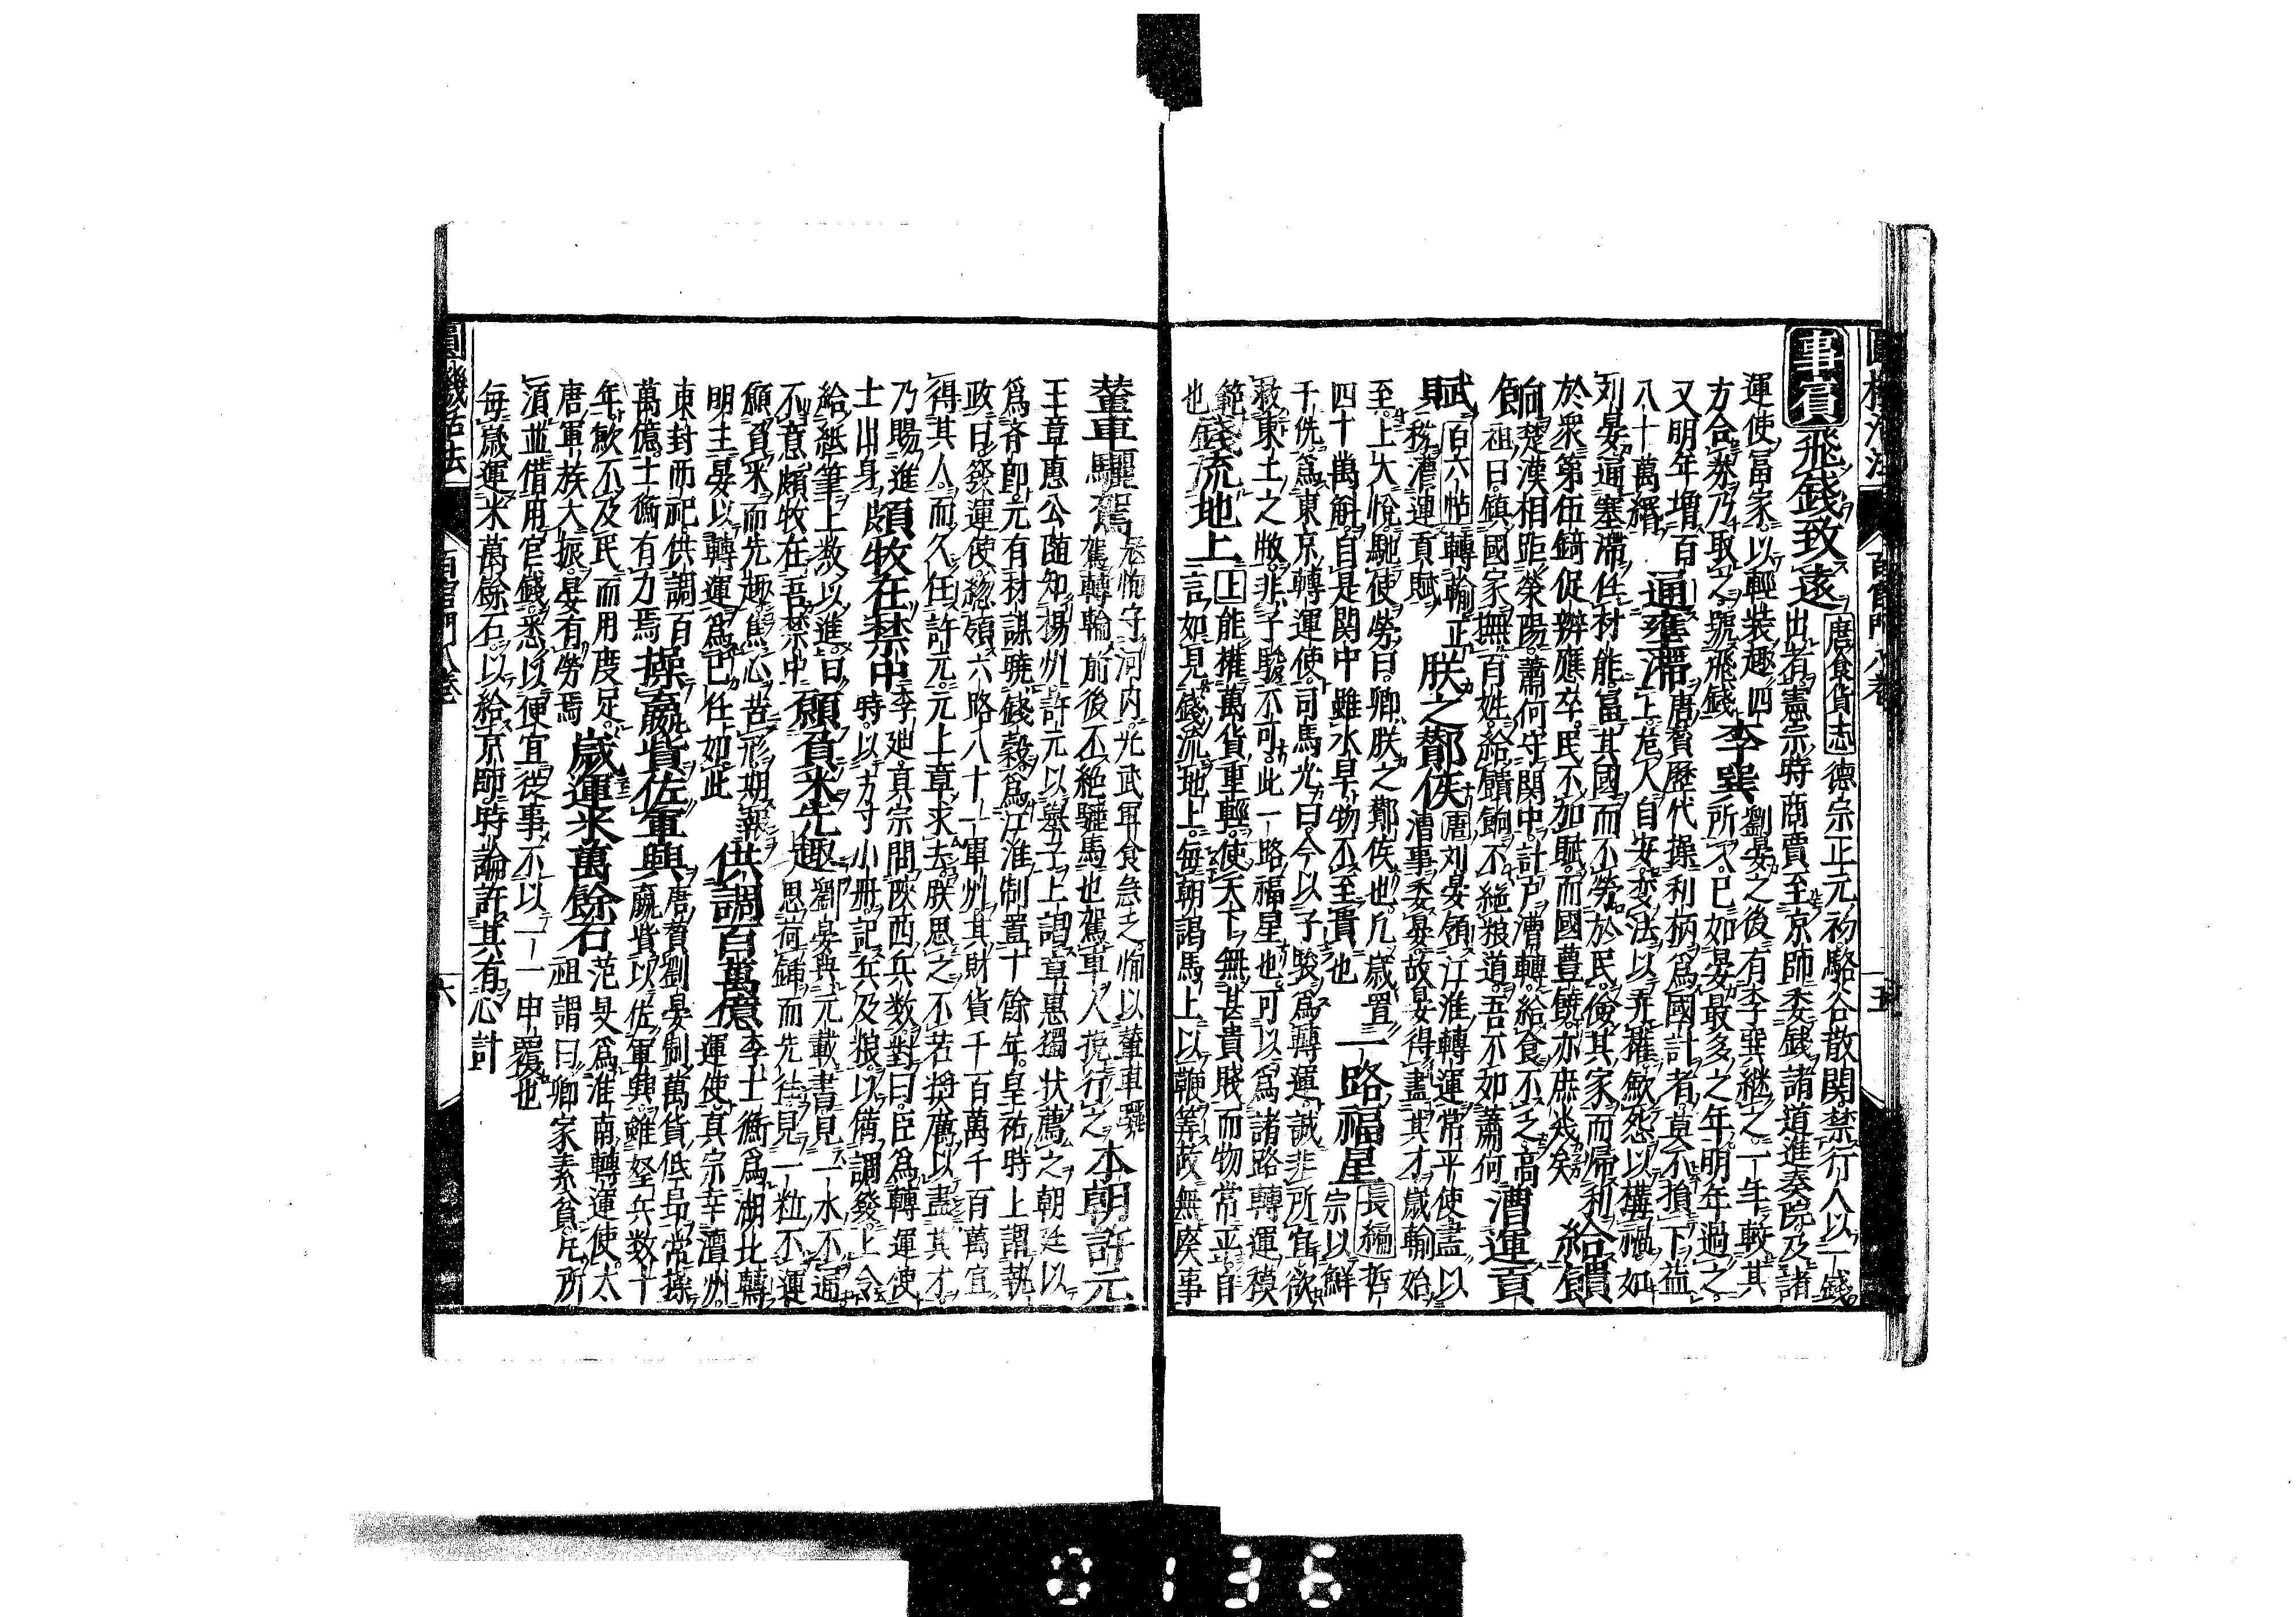 圓機活法 百官門八卷 五
事實 飛錢致遠 唐食貨志 德宗正元初駱谷散関禁行人以一錢
出者憲宗時商賈至京師委錢諸道進奏院及諸
運使冨家以輕裝趣四
方合券乃取之號飛錢 李巽 劉晏之後有李巽継之一年較其
所入已如晏最多之年明年過之
又明年增百
八十萬緡 通壅滯 唐賛歴代操利柄爲國計者莫不損下益
上危人自安变法以弄權歛怨以構禍如
刘晏通塞滞任材能冨其國而不勞於民儉其家而帰利
於衆第伍錡促辨應卒民不加賦而國豊饒亦庶幾矣 給饋
餉 楚漢相距榮陽蕭何守関中計户漕轉給食不乏高
祖曰鎮國家撫百姓給饋餉不絶粮道吾不如蕭何 漕運貢
賦 百六帖 轉輸正
税漕運貢賦 朕之酇侯 唐 刘晏領江淮轉運常平使盡以
漕事委晏故晏得盡其才歳輸始
至上大悅馳使勞曰卿朕之酇侯也凢歳置
四十萬斛自是関中雖水旱物不至貴也 一路福星 長編 哲
宗以鮮
于侁爲東京轉運使司馬光曰今以子駿爲轉運誠非所宜欲
救東土之敝非子駿不可此一路福星也可以爲諸路轉運模
範 錢流地上 上能權萬貨重輕使天下無甚貴賎而物常平自
言如見錢流地上每朝謁馬上以鞭筭故無廃事
也
輦車驪駕 冦恂守河内光武軍食急乏恂以輦車驪
駕轉輸前後不絶驪馬也駕車人挽行之 本朝許元
王章惠公随知揚州許元以舉子上謁章惠獨状薦之朝廷以
爲斉郎元有材謀曉錢穀爲江淮制置十餘年皇祐時上謂執
政曰發運使総領六路八十一軍州其財貨千百萬千百萬宜
得其人而久任許元元上章求去朕思之不若奨厲以盡其才
乃賜進
士出身 頗牧在禁中 李𨓏真宗問陝西兵数對曰臣爲轉運使
時以方寸小冊記兵及粮以備調發上令
給紙筆上数以進曰
不意頗牧在吾禁中 願負米先趣 劉晏與元載書見一水不通
思荷鍤而先徃見一粒不運
願負米而先趣焦心苦形期報
明主晏以轉運爲已任如此 供調百萬億 李士衡爲湖北轉
運使真宗幸瀆州
東封而祀供調百
萬億士衡有力焉 操贏貲佐軍興 唐賛劉晏制萬貨低昂常操
贏貲以佐軍興雖拏兵数十
年歛不及民而用度足
唐軍族大振晏有勞焉 歳運米萬餘石 范旻爲淮南轉運使太
祖謂曰卿家素貧凢所
湏並借用官錢悉以便宜從事不以一一申覆也
每歳運米萬餘石以給京師時論許其有心計
圓機活法 百官門八卷 六
0136